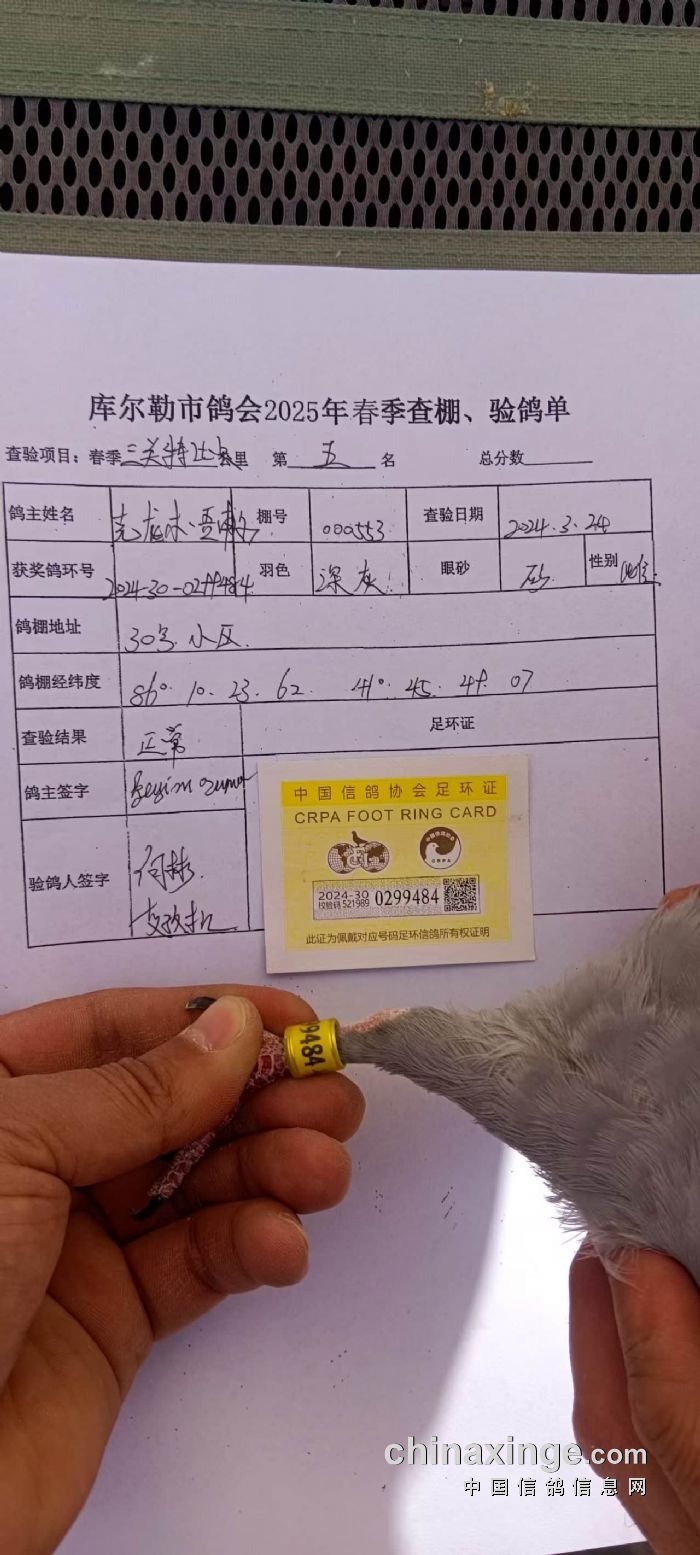 库尔勒市鸽会2025年春季查棚、验鸽单
查验项目：春季三关特比公里 第 五 名 总分数
鸽主姓名 棚号 000553 查验日期 2024.3.24
获奖鸽环号 2024-30-0299484 羽色 深灰 眼砂 砂 性别
鸽棚地址 30号小区
鸽棚经纬度 86° 10. 23. 62. 41° 45. 49. 07
查验结果 正常 足环证
鸽主签字
验鸽人签字 何彬
中国信鸽协会足环证
CRPA FOOT RING CARD
2024-30 0299484
校验码 521989
此证为佩戴对应号码足环信鸽所有权证明
99484
chinaxinge.com
中国信鸽信息网